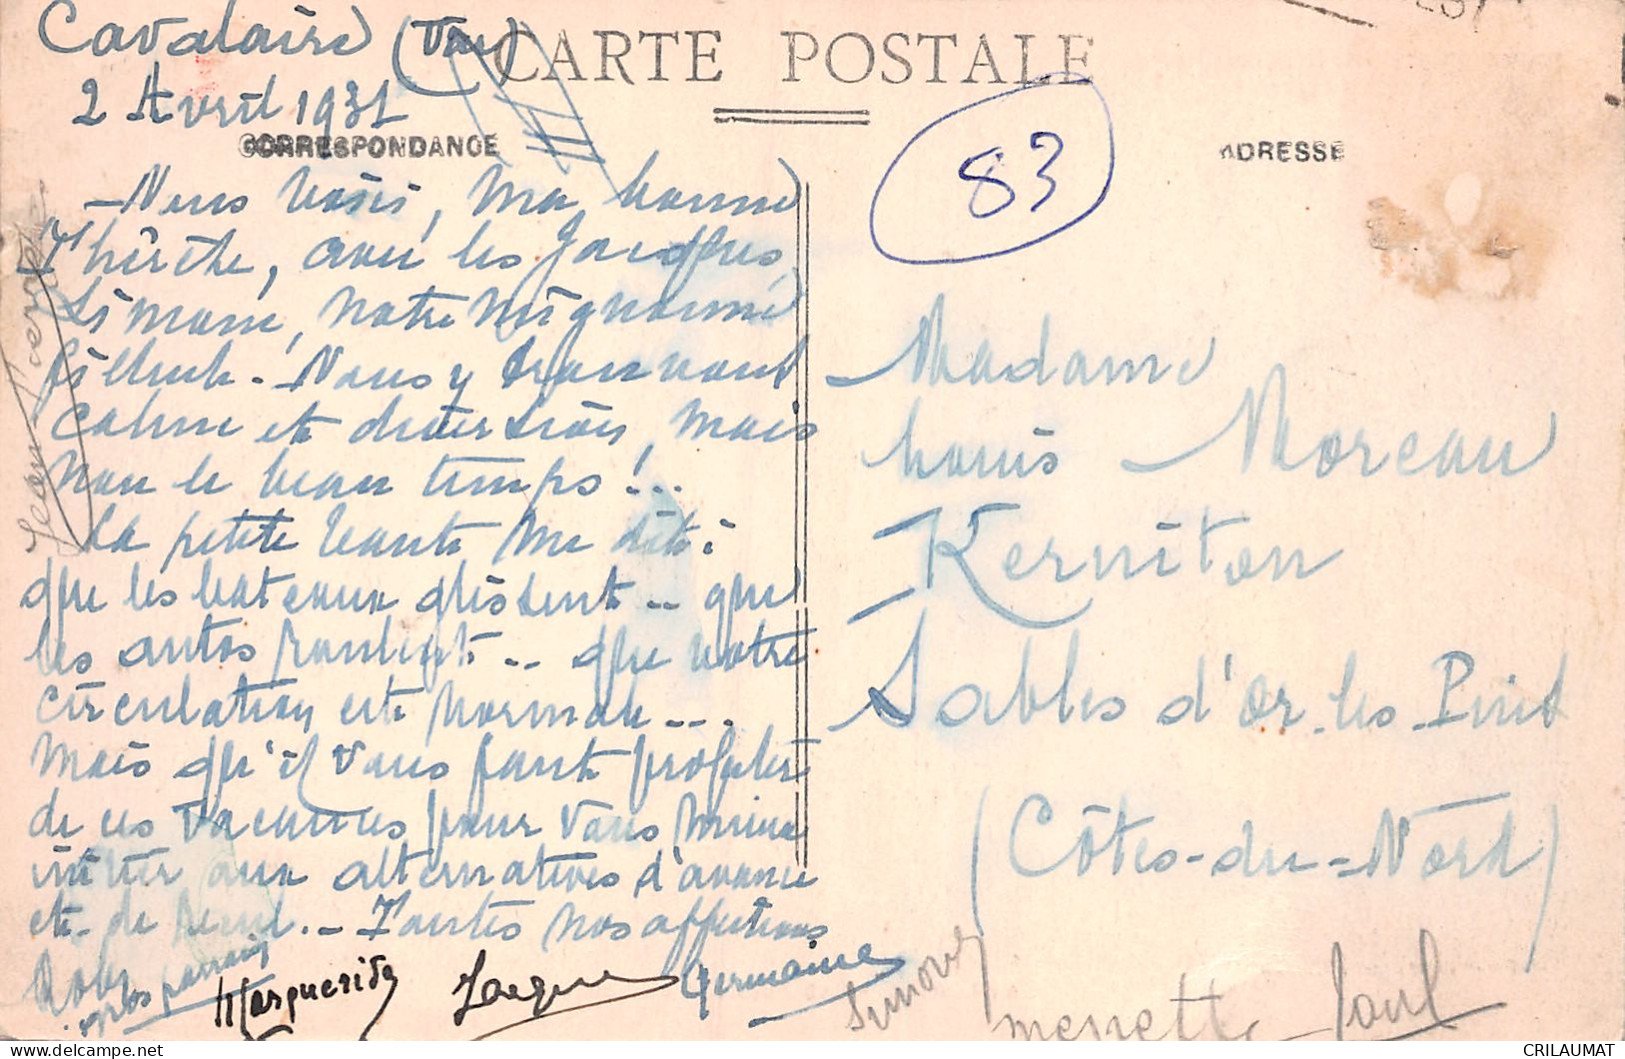 Cavalaire (Var)
2 Avril 1931
CARTE POSTALE
CORRESPONDANCE
ADRESSE
83
– Nous voici, ma bonne
avec les Jacques,
Simone, notre mignonne
filleule. – Nous y trouvons
calme et diversion, mais
non le beau temps !...
La petite Tante me dit :
que les bateaux glissent .. que
les autos roulent .. que votre
circulation est normale ...
mais qu'il vous faut profiter
de ces vacances pour vous
initier aux alternatives d'avance
et de recul. – Toutes nos affections
Marguerite Jacques Germaine
Simone
Paul
Jean Pierre
Madame
Louis Moreau
Kerniton
Sables d'or-les-Pins
(Côtes-du-Nord)
CRILAUMAT